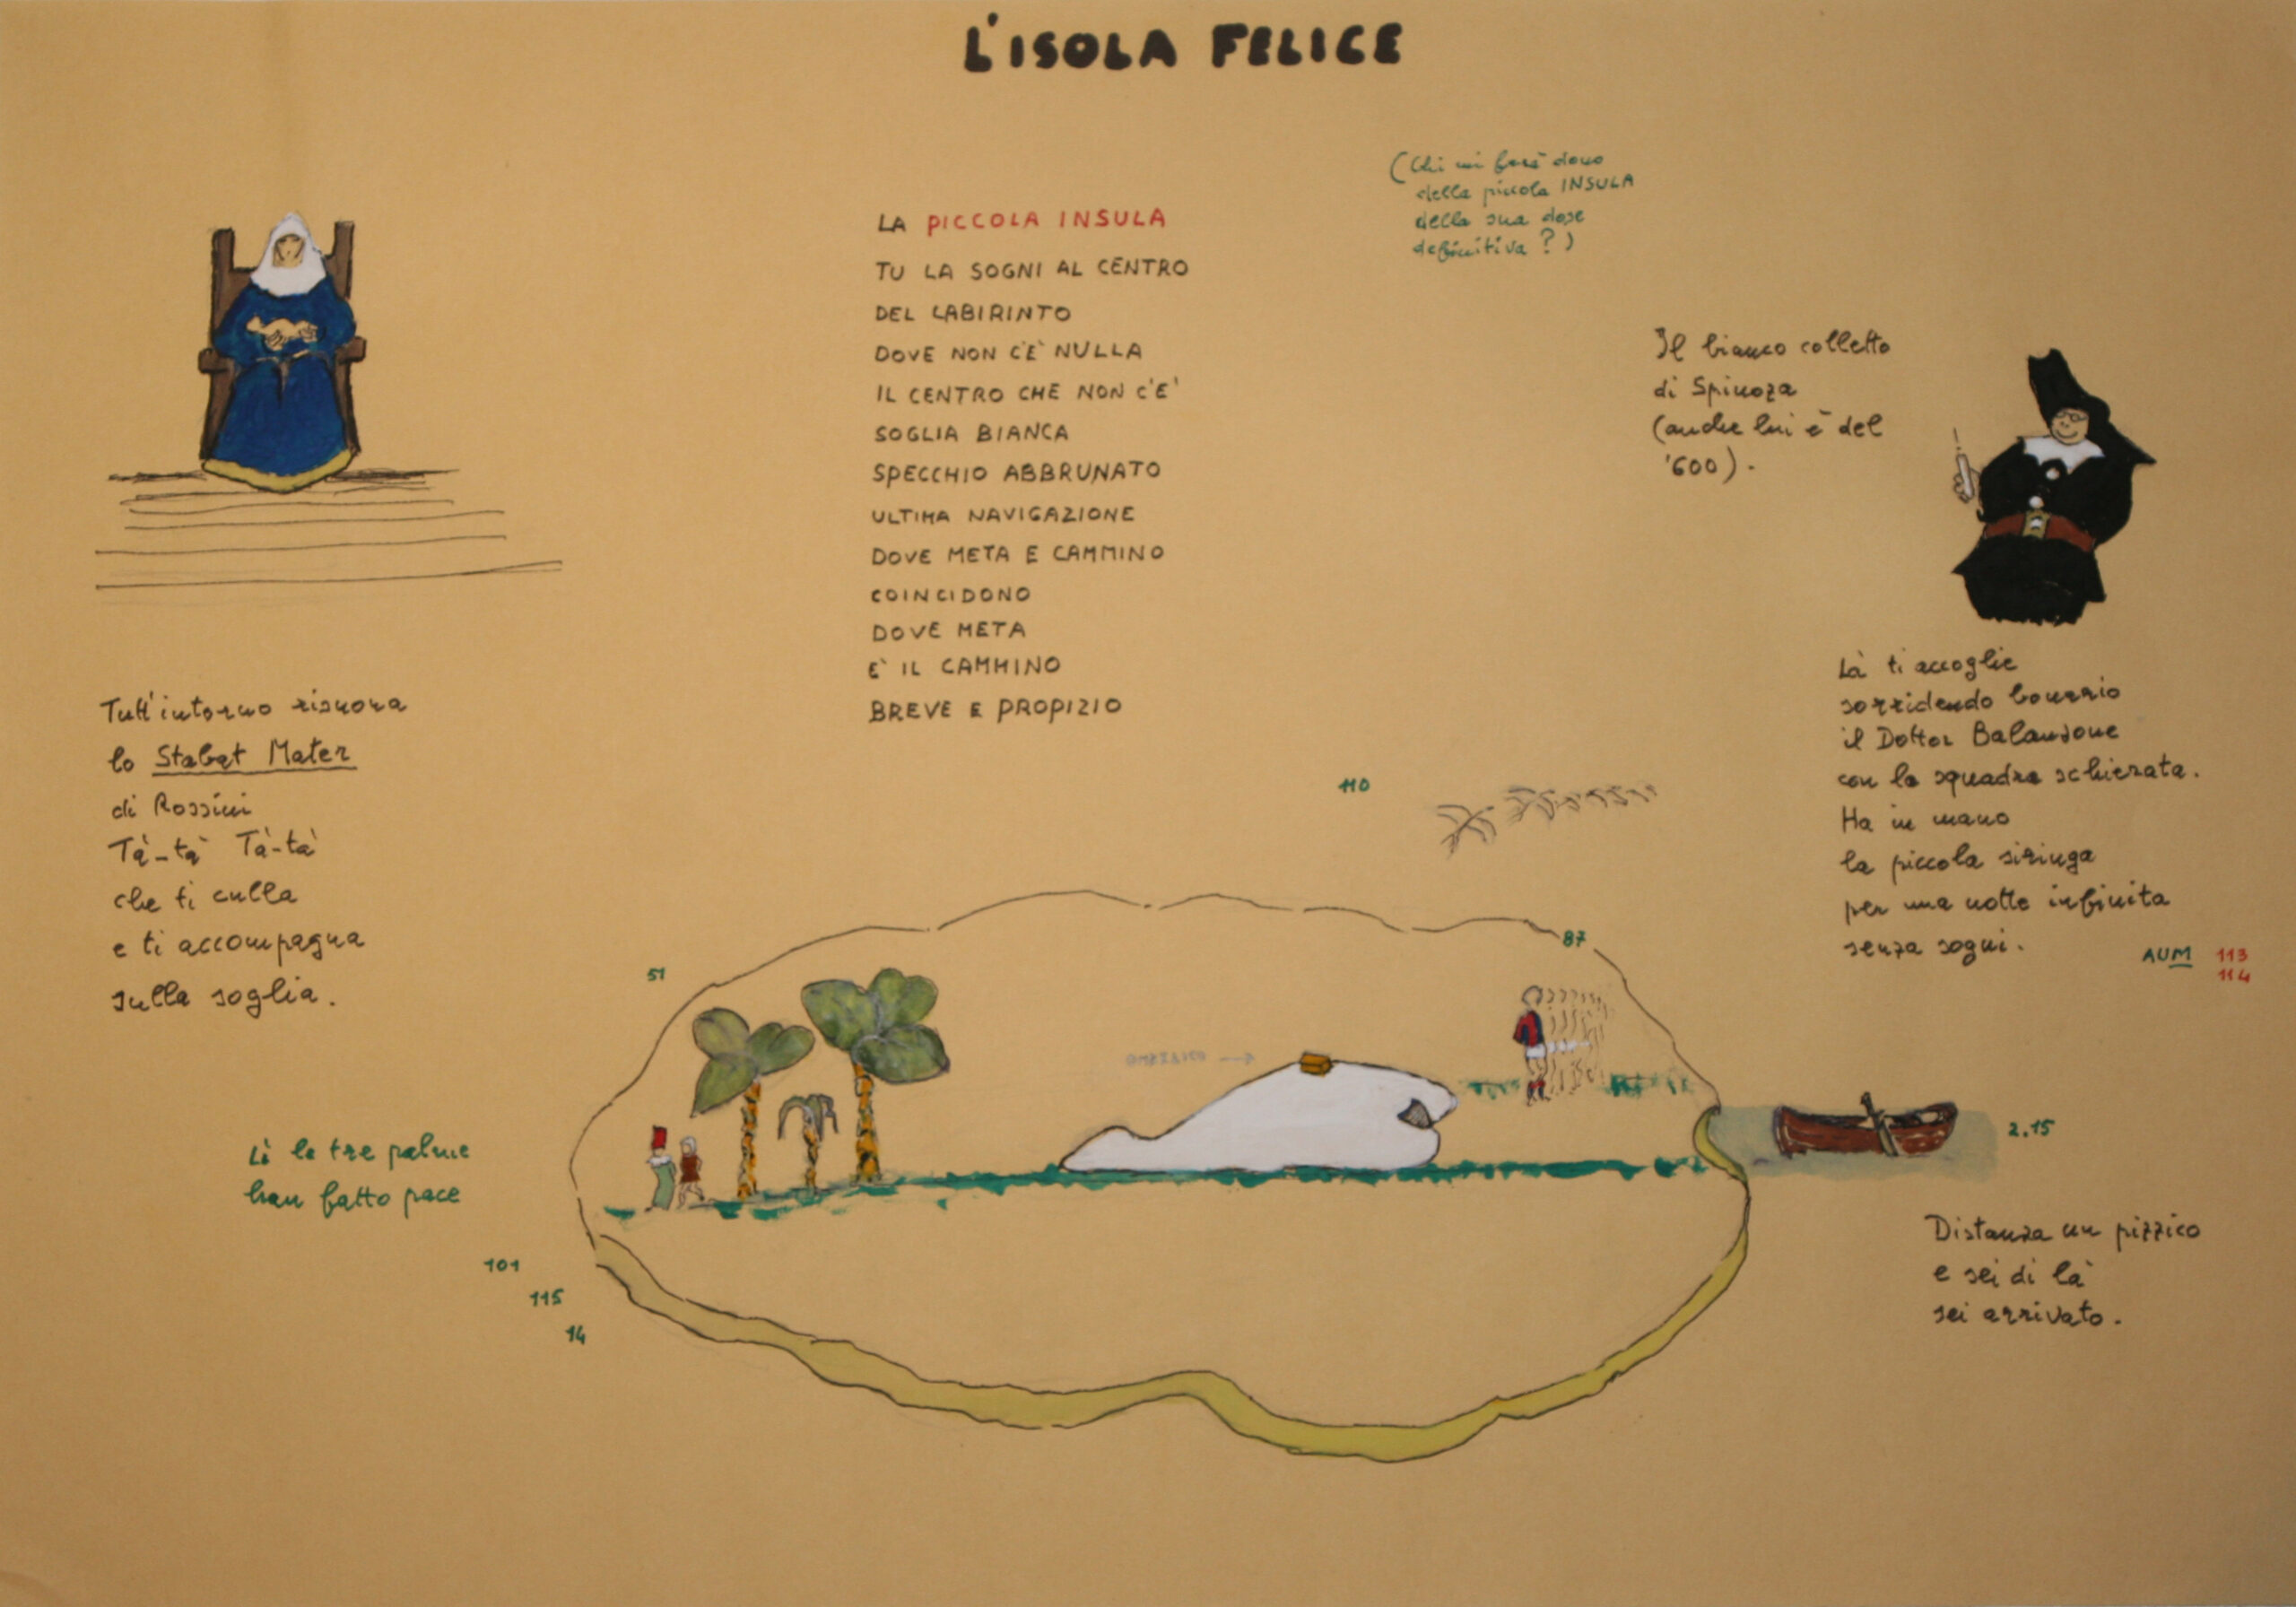 L'ISOLA FELICE
(Chi mi farà dono
della piccola INSULA
della sua dose
definitiva ?)
LA PICCOLA INSULA
TU LA SOGNI AL CENTRO
DEL LABIRINTO
DOVE NON C'È NULLA
IL CENTRO CHE NON C'E'
SOGLIA BIANCA
SPECCHIO ABBRUNATO
ULTIMA NAVIGAZIONE
DOVE META E CAMMINO
COINCIDONO
DOVE META
E' IL CAMMINO
BREVE E PROPIZIO
Il bianco colletto
di Spinoza
(anche lui è del
'600).
Tutt'intorno risuona
lo Stabat Mater
di Rossini
Tà-tà Tà-tà
che ti culla
e ti accompagna
sulla soglia.
Là ti accoglie
sorridendo bonario
il Dottor Balanzone
con la squadra schierata.
Ha in mano
la piccola siringa
per una notte infinita
senza sogni.
AUM 113
114
110
87
51
Lì le tre palme
han fatto pace
101
115
14
2.15
Distanza un pizzico
e sei di là
sei arrivato.